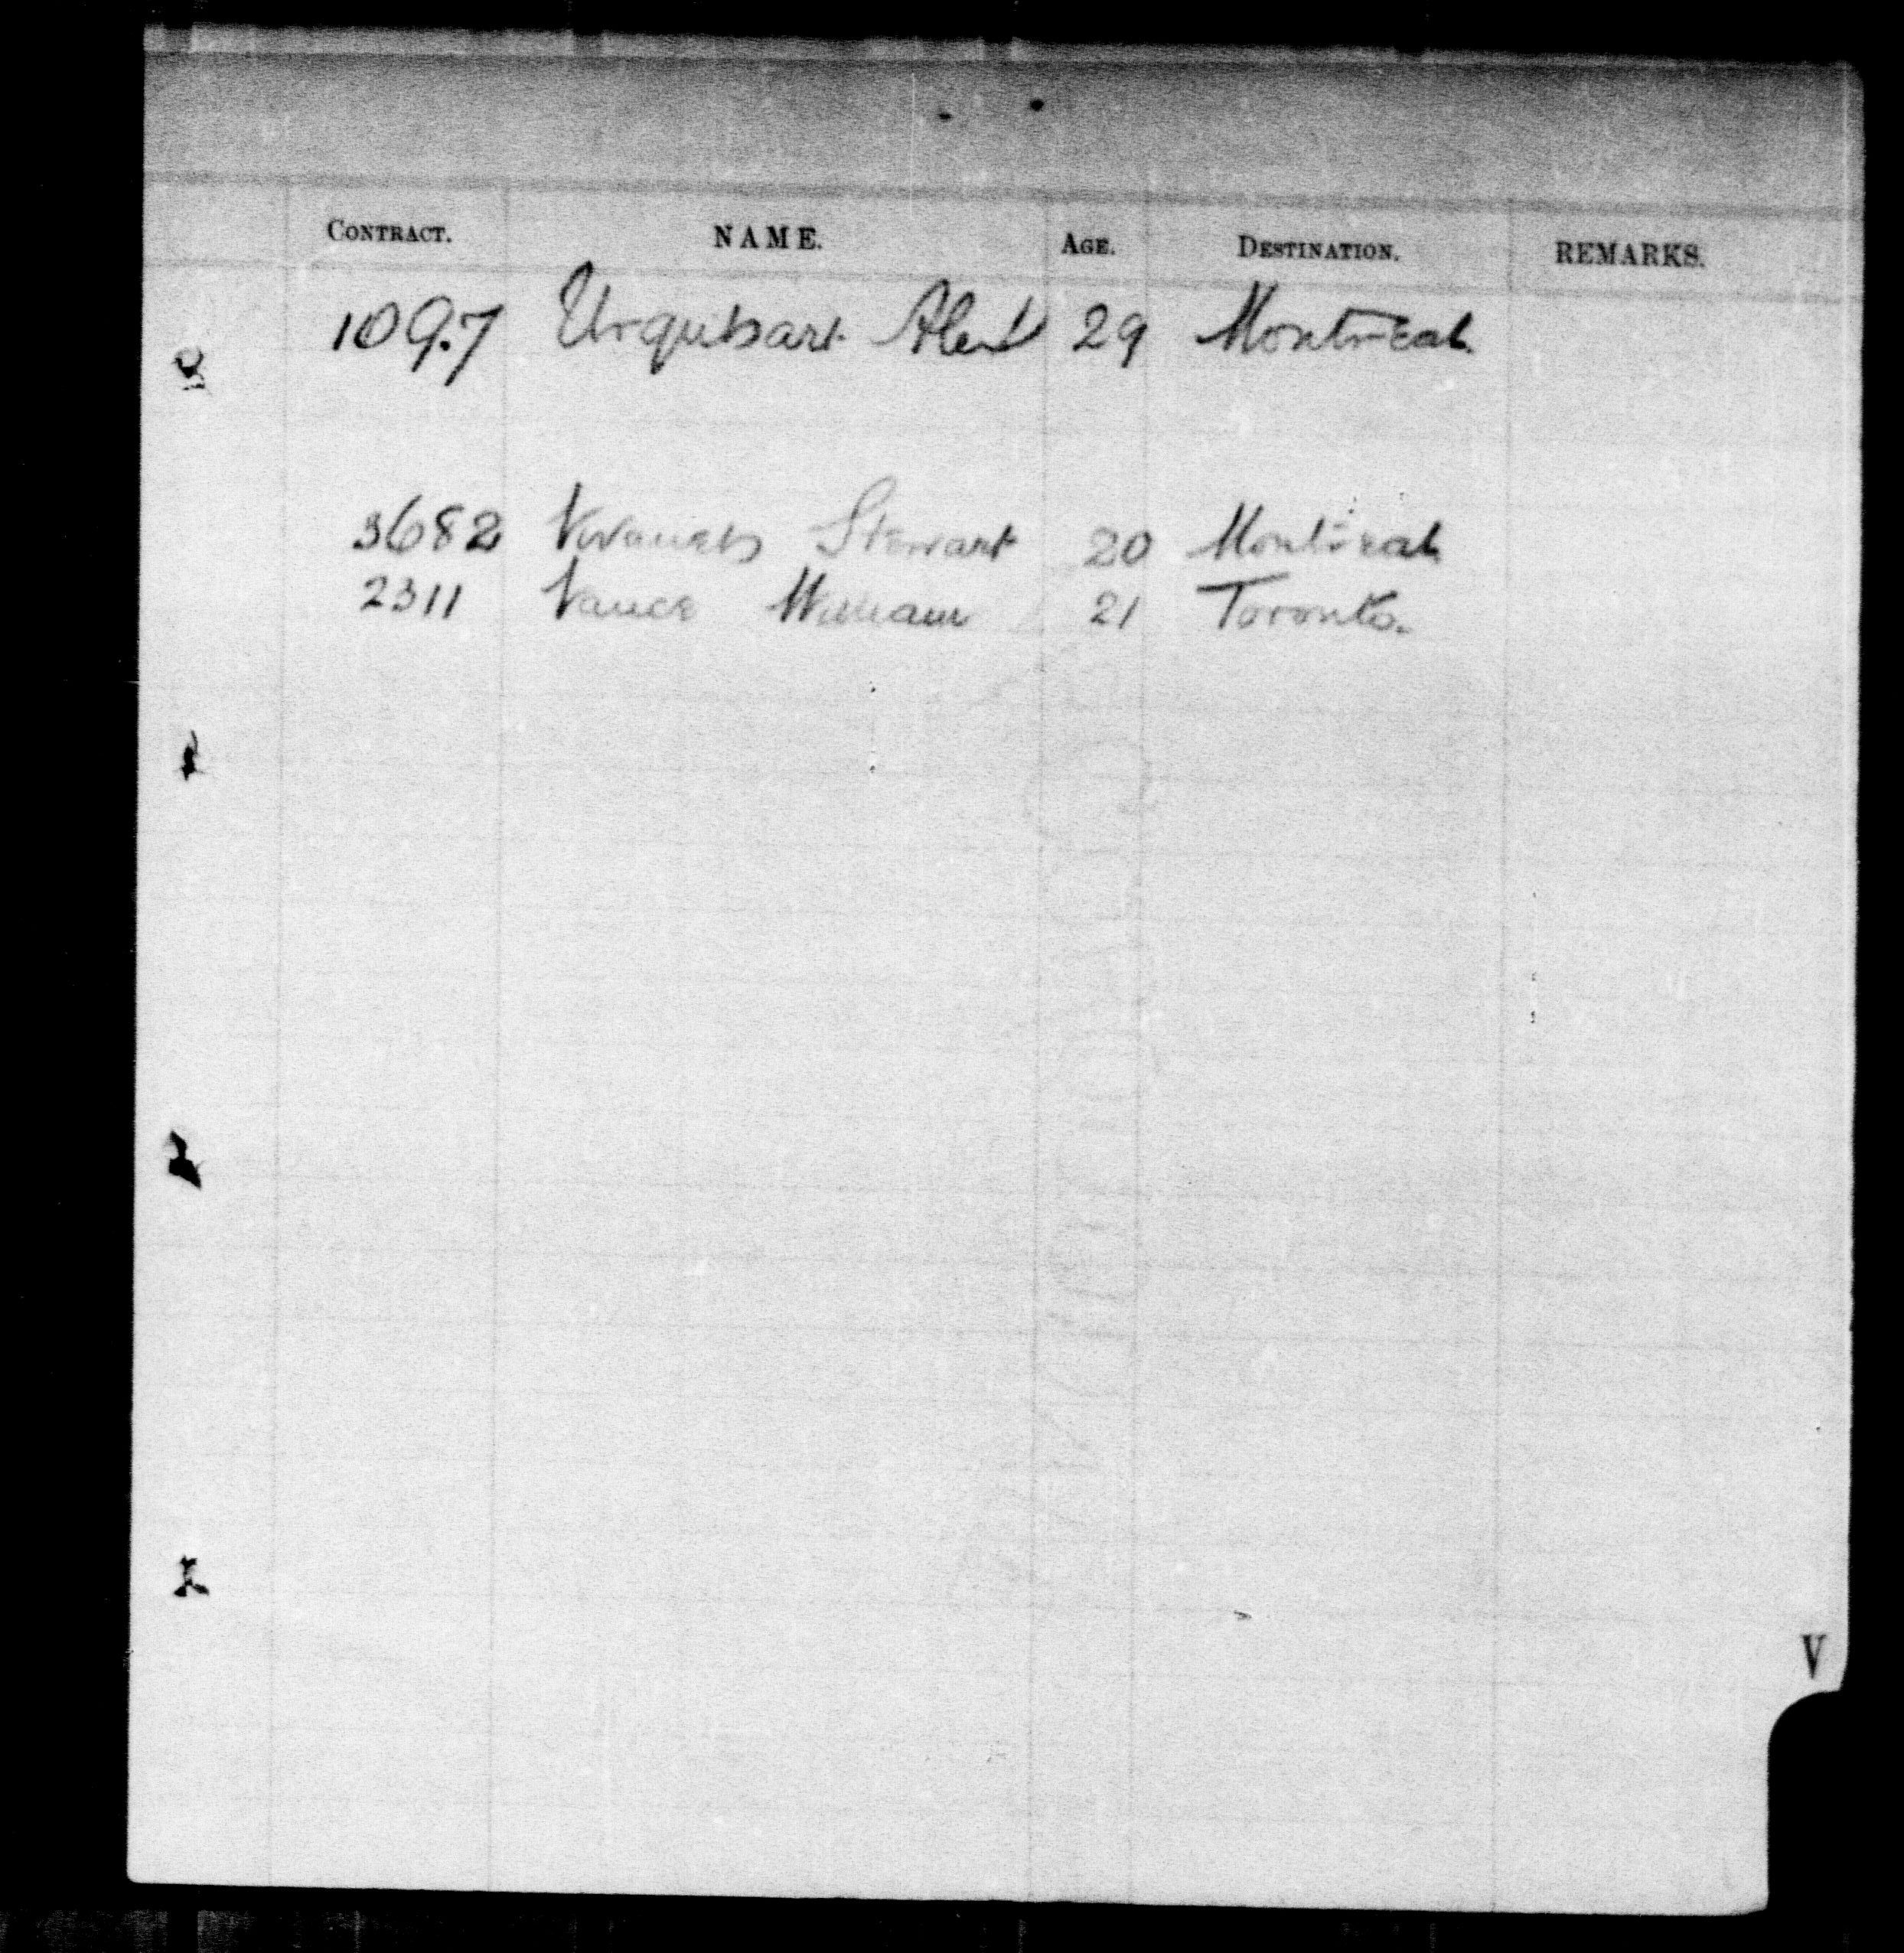 CONTRACT. NAME. AGE. DESTINATION. REMARKS.
1097 Urquhart Alex 29 Montreal.
3682 Stewart 20 Montreal
2311 Vance William 21 Toronto.
V